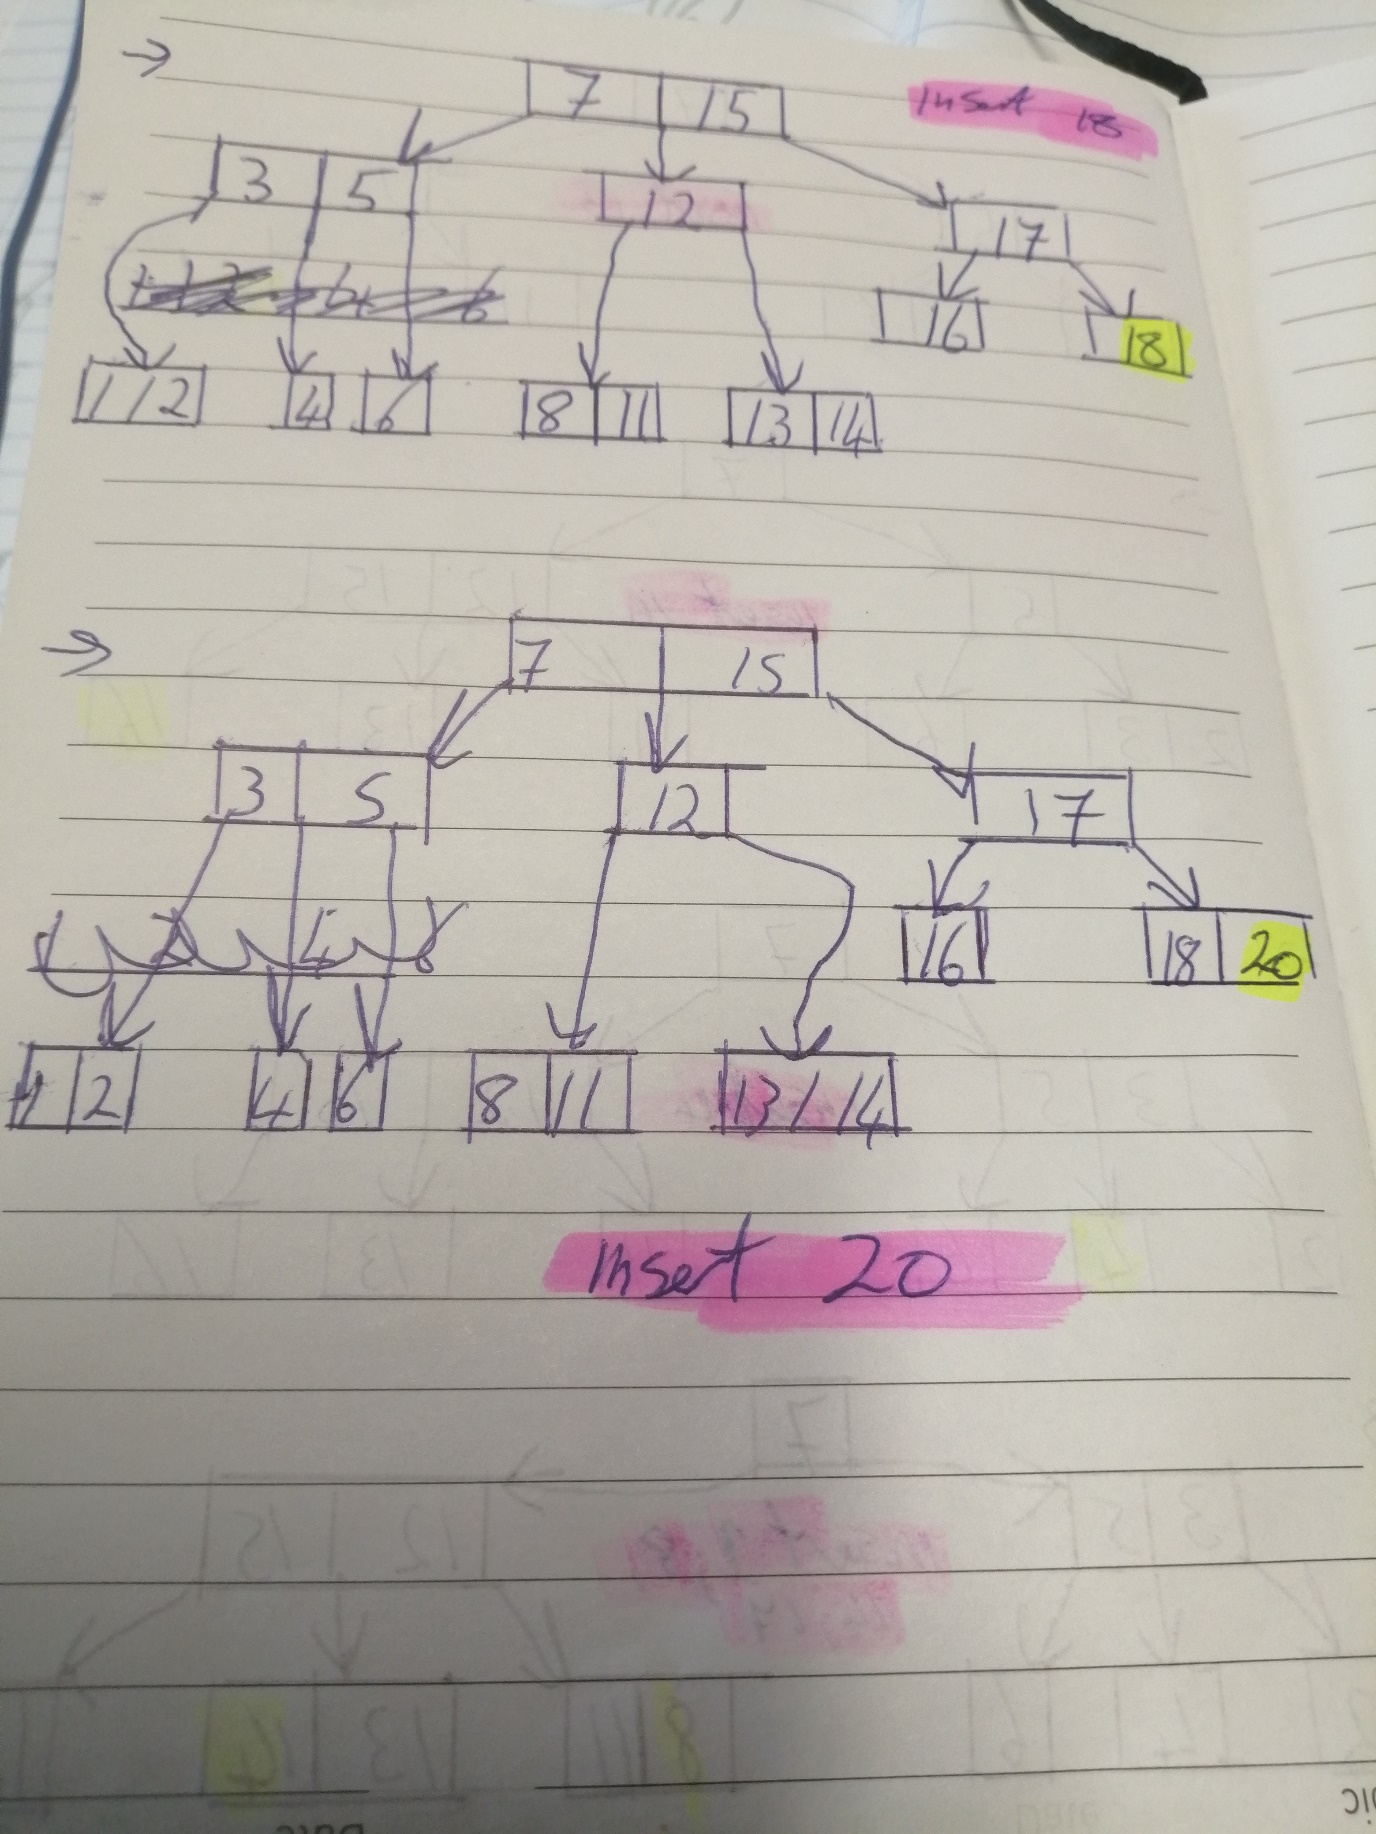 → 7 15 Insert 18
3 5 12 17
16 18
1 / 2 4 6 8 11 13 14
→ 7 15
3 5 12 17
16 18 20
1 2 4 6 8 11 13 / 14
Insert 20